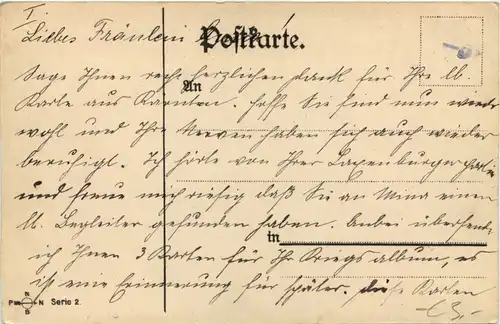 I.
Liebes Fräulein
Postkarte.
Sage Ihnen recht herzlichen Dank für Ihre lb.
An
Karte aus Kärnten. Hoffe Sie sind nun wieder
wohl und Ihre Nerven haben sich auch wieder
beruhigt. Ich hörte von Ihrer Laxenburger
und freue mich riesig daß Sie an Mina einen
lb. Begleiter gefunden haben. Anbei übersende
in
ich Ihnen 3 Karten für Ihr Kriegsalbum, es
ist eine Erinnerung für später. Diese Karten
P N N S
Serie 2.